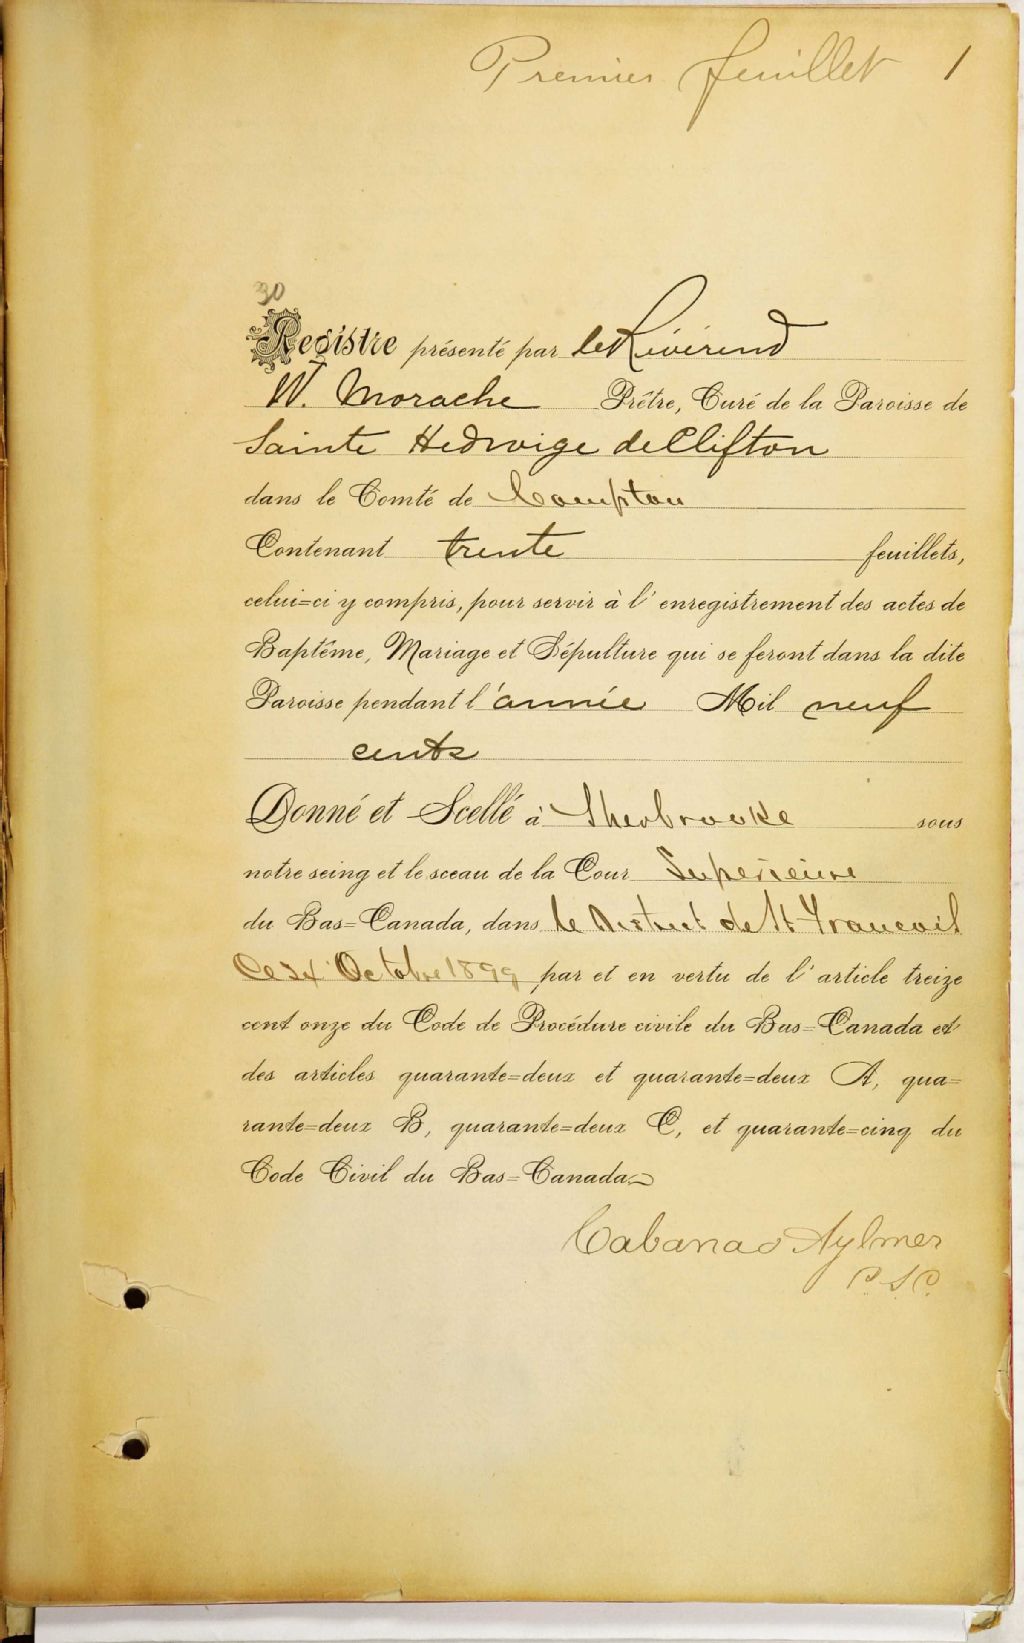 Premier feuillet 1
30
Registre présenté par le Révérend
W. Morache Prêtre, Curé de la Paroisse de
Sainte Hedwige de Clifton
dans le Comté de Compton
Contenant trente feuillets,
celui=ci y compris, pour servir à l'enregistrement des actes de
Baptême, Mariage et Sépulture qui se feront dans la dite
Paroisse pendant l'année Mil neuf
cents
Donné et Scellé à Sherbrooke sous
notre seing et le sceau de la Cour Supérieure
du Bas=Canada, dans le District de St Francois
Ce Octobre 1899 par et en vertu de l'article treize
cent onze du Code de Procédure civile du Bas=Canada et
des articles quarante=deux et quarante=deux A, qua=
rante=deux B, quarante=deux C, et quarante=cinq du
Code Civil du Bas=Canada
Cabana & Aylmer
P.S.C.